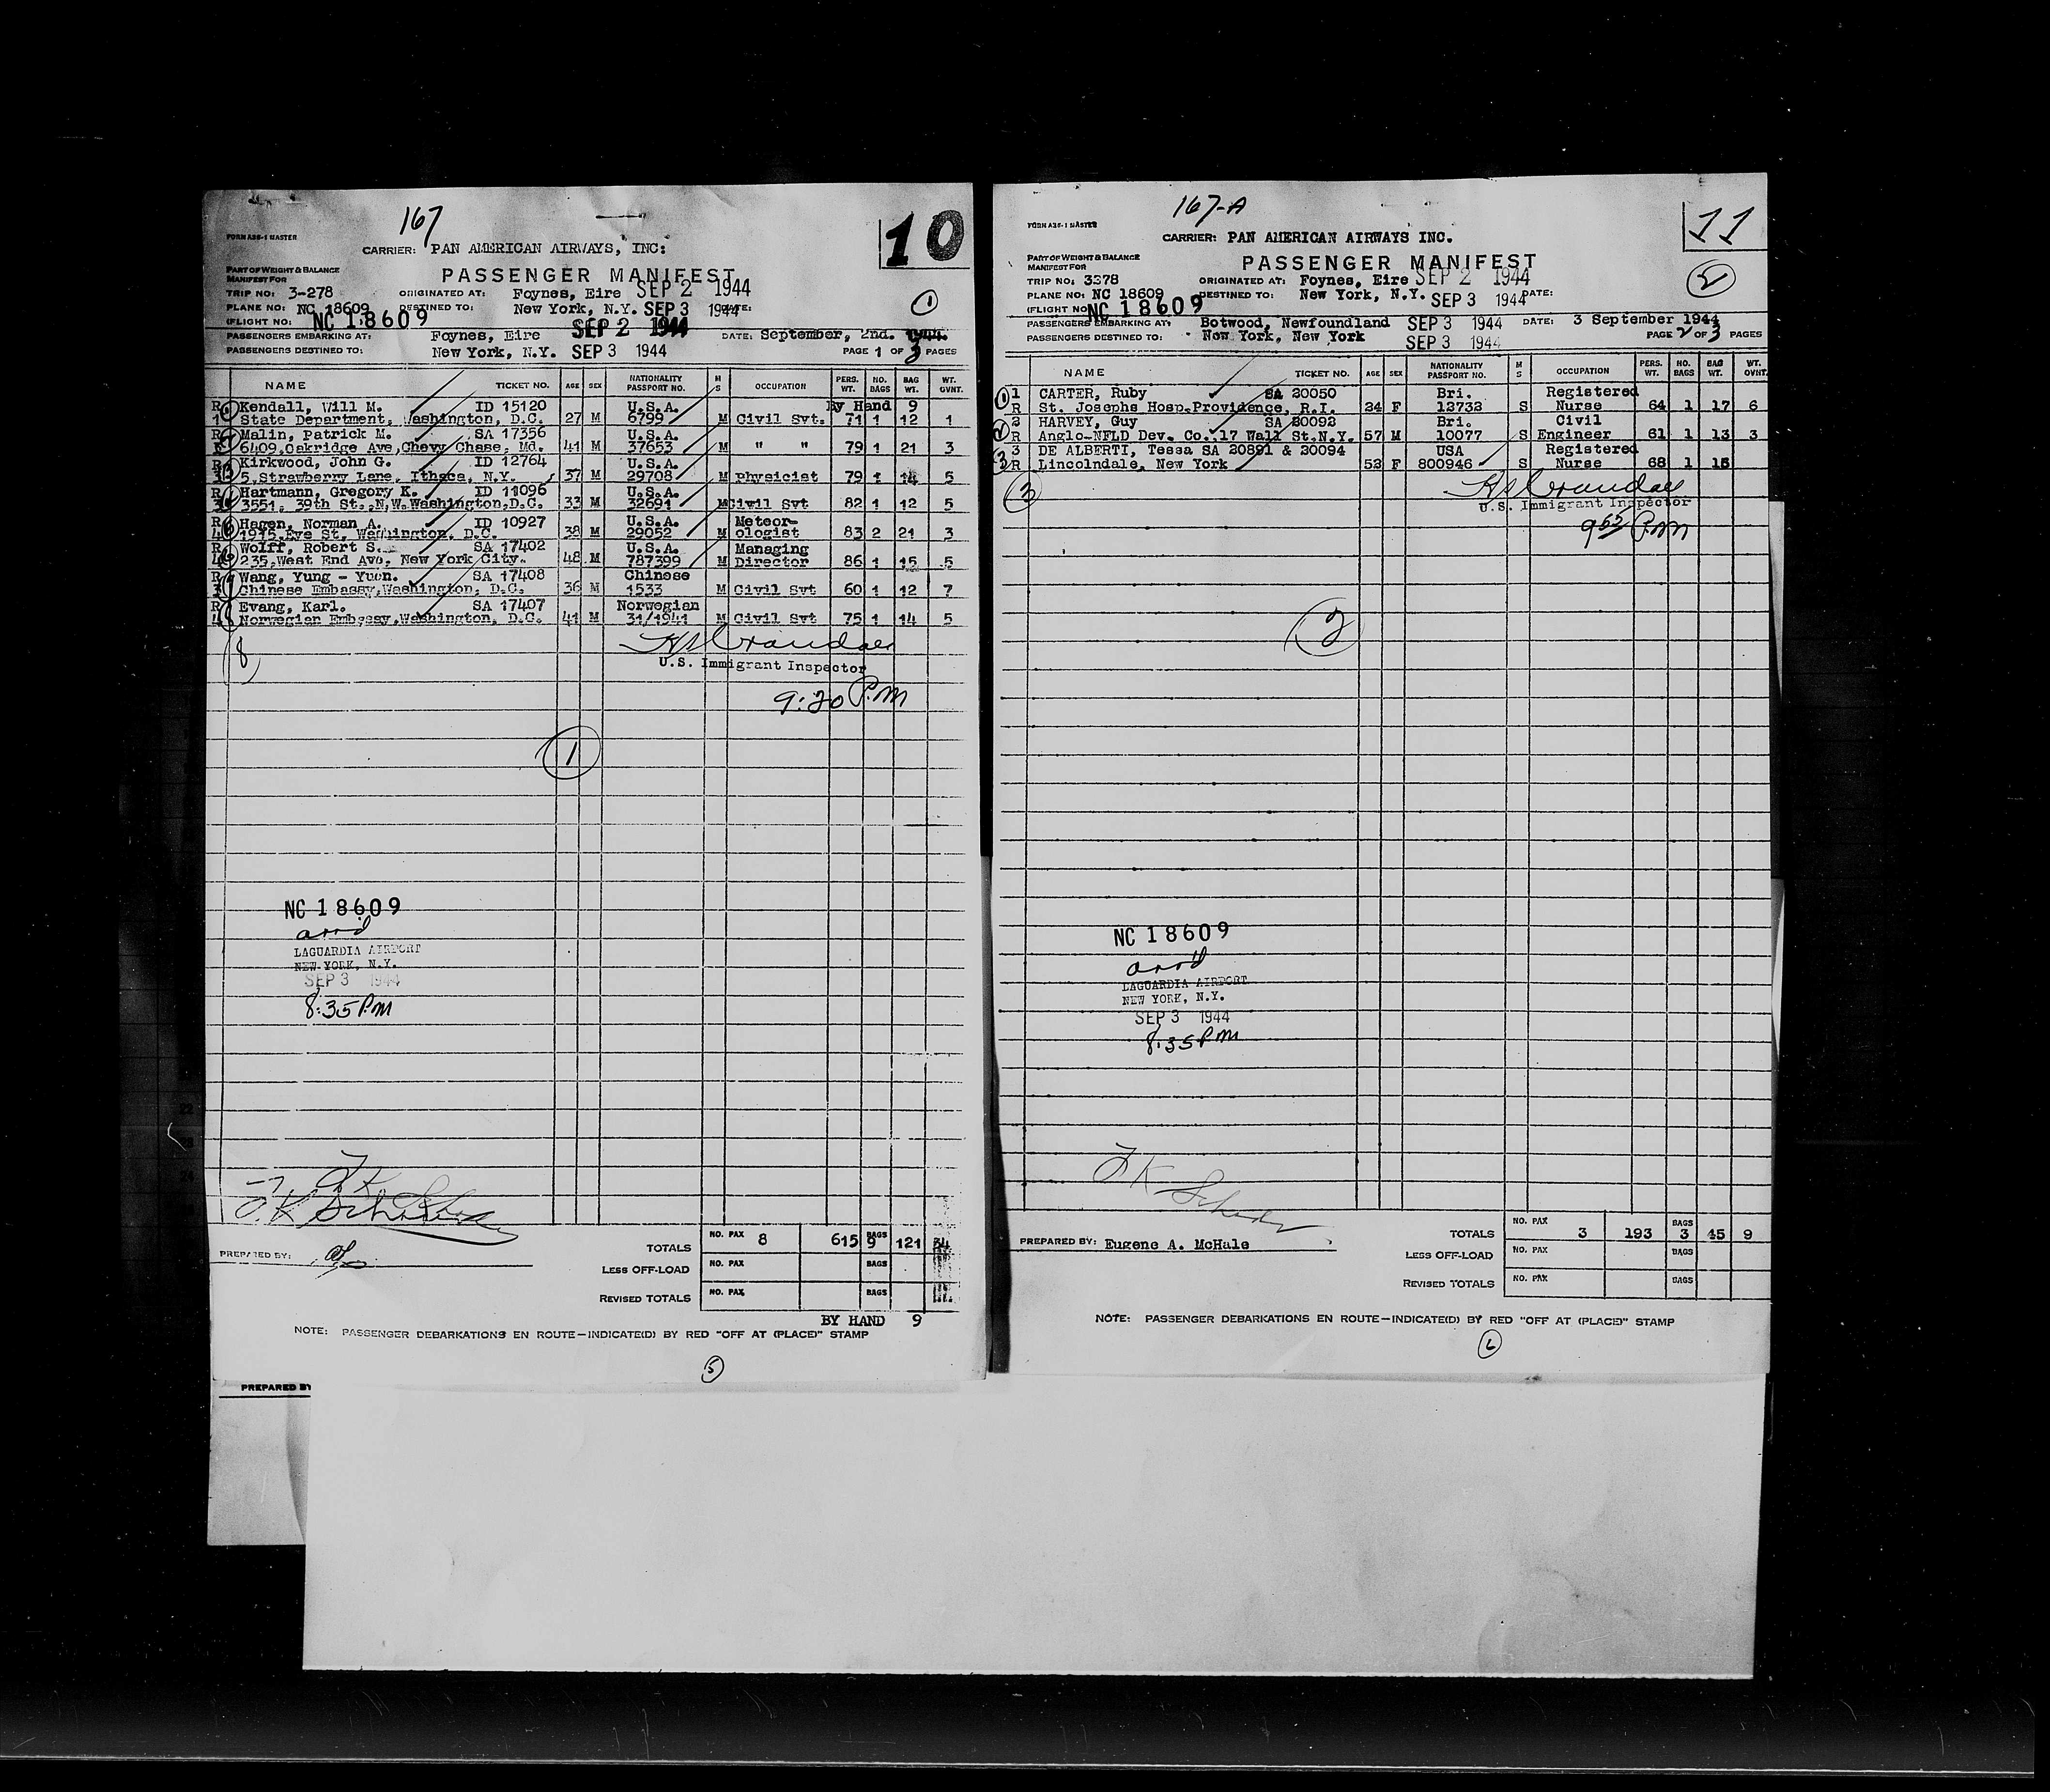 167
10
FORM A36-1 MASTER
CARRIER: PAN AMERICAN AIRWAYS, INC:
PART OF WEIGHT & BALANCE
MANIFEST FOR
PASSENGER MANIFEST
TRIP NO: 3-278 ORIGINATED AT: Foynes, Eire SEP 2 1944
1
PLANE NO: NC 18609 DESTINED TO: New York, N.Y. SEP 3 1944 DATE:
(FLIGHT NO: NC 18609
PASSENGERS EMBARKING AT: Foynes, Eire SEP 2 1944 DATE: September, 2nd. 1944.
PASSENGERS DESTINED TO: New York, N.Y. SEP 3 1944 PAGE 1 OF 3 PAGES
NAME TICKET NO. AGE SEX NATIONALITY PASSPORT NO. M S OCCUPATION PERS. WT. NO. BAGS BAG WT. WT. OVNT.
R 1 Kendall, Will M. ID 15120 U.S.A. By Hand 9
1 State Department, Washington, D.C. 27 M 6799 M Civil Svt. 71 1 12 1
R Malin, Patrick M. SA 17356 U.S.A.
6409, Oakridge Ave, Chevy Chase, Md. 41 M 37653 M " " 79 1 21 3
R Kirkwood, John G. ID 12764 U.S.A.
3 5, Strawberry Lane, Ithaca, N.Y. 37 M 29708 M Physicist 79 1 14 5
R Hartmann, Gregory K. ID 11096 U.S.A.
3 3551, 39th St., N.W. Washington, D.C. 33 M 32691 M Civil Svt 82 1 12 5
R Hagen, Norman A. ID 10927 U.S.A. Meteor-
4 1915, Eye St, Washington, D.C. 38 M 29052 M ologist 83 2 21 3
R Wolff, Robert S. SA 17402 U.S.A. Managing
4 235, West End Ave, New York City. 48 M 787399 M Director 86 1 15 5
R Wang, Yung - Yuen. SA 17408 Chinese
3 Chinese Embassy, Washington, D.C. 36 M 1533 M Civil Svt 60 1 12 7
R Evang, Karl. SA 17407 Norwegian
4 Norwegian Embassy, Washington, D.C. 41 M 31/1941 M Civil Svt 75 1 14 5
8
U.S. Immigrant Inspector
9:20 P.M
1
NC 18609
arr'd
LAGUARDIA AIRPORT
NEW YORK, N.Y.
SEP 3 1944
8:35 P.M
PREPARED BY:
TOTALS NO. PAX 8 615 BAGS 9 121 34
LESS OFF-LOAD NO. PAX BAGS
REVISED TOTALS NO. PAX BAGS
BY HAND 9
NOTE: PASSENGER DEBARKATIONS EN ROUTE—INDICATE(D) BY RED "OFF AT (PLACE)" STAMP
5
PREPARED BY
167-A
11
FORM A36-1 MASTER
CARRIER: PAN AMERICAN AIRWAYS INC.
PART OF WEIGHT & BALANCE
MANIFEST FOR
PASSENGER MANIFEST
TRIP NO: 3278 ORIGINATED AT: Foynes, Eire SEP 2 1944
2
PLANE NO: NC 18609 DESTINED TO: New York, N.Y. SEP 3 1944 DATE:
(FLIGHT NO: NC 18609
PASSENGERS EMBARKING AT: Botwood, Newfoundland SEP 3 1944 DATE: 3 September 1944
PASSENGERS DESTINED TO: New York, New York SEP 3 1944 PAGE 2 OF 3 PAGES
NAME TICKET NO. AGE SEX NATIONALITY PASSPORT NO. M S OCCUPATION PERS. WT. NO. BAGS BAG WT. WT. OVNT.
1 CARTER, Ruby SA 20050 Bri. Registered
R St. Josephs Hosp. Providence, R.I. 24 F 12732 S Nurse 64 1 17 6
2 HARVEY, Guy SA 20092 Bri. Civil
R Anglo-NFLD Dev. Co., 17 Wall St. N.Y. 57 M 10077 S Engineer 61 1 13 3
3 DE ALBERTI, Tessa SA 20891 & 20094 USA Registered
R Lincolndale, New York 53 F 800946 S Nurse 68 1 15
3
U.S. Immigrant Inspector
P.M
2
NC 18609
arr'd
LAGUARDIA AIRPORT
NEW YORK, N.Y.
SEP 3 1944
8:35 P.M
PREPARED BY: Eugene A. McHale
TOTALS NO. PAX 3 193 BAGS 3 45 9
LESS OFF-LOAD NO. PAX BAGS
REVISED TOTALS NO. PAX BAGS
NOTE: PASSENGER DEBARKATIONS EN ROUTE—INDICATE(D) BY RED "OFF AT (PLACE)" STAMP
6